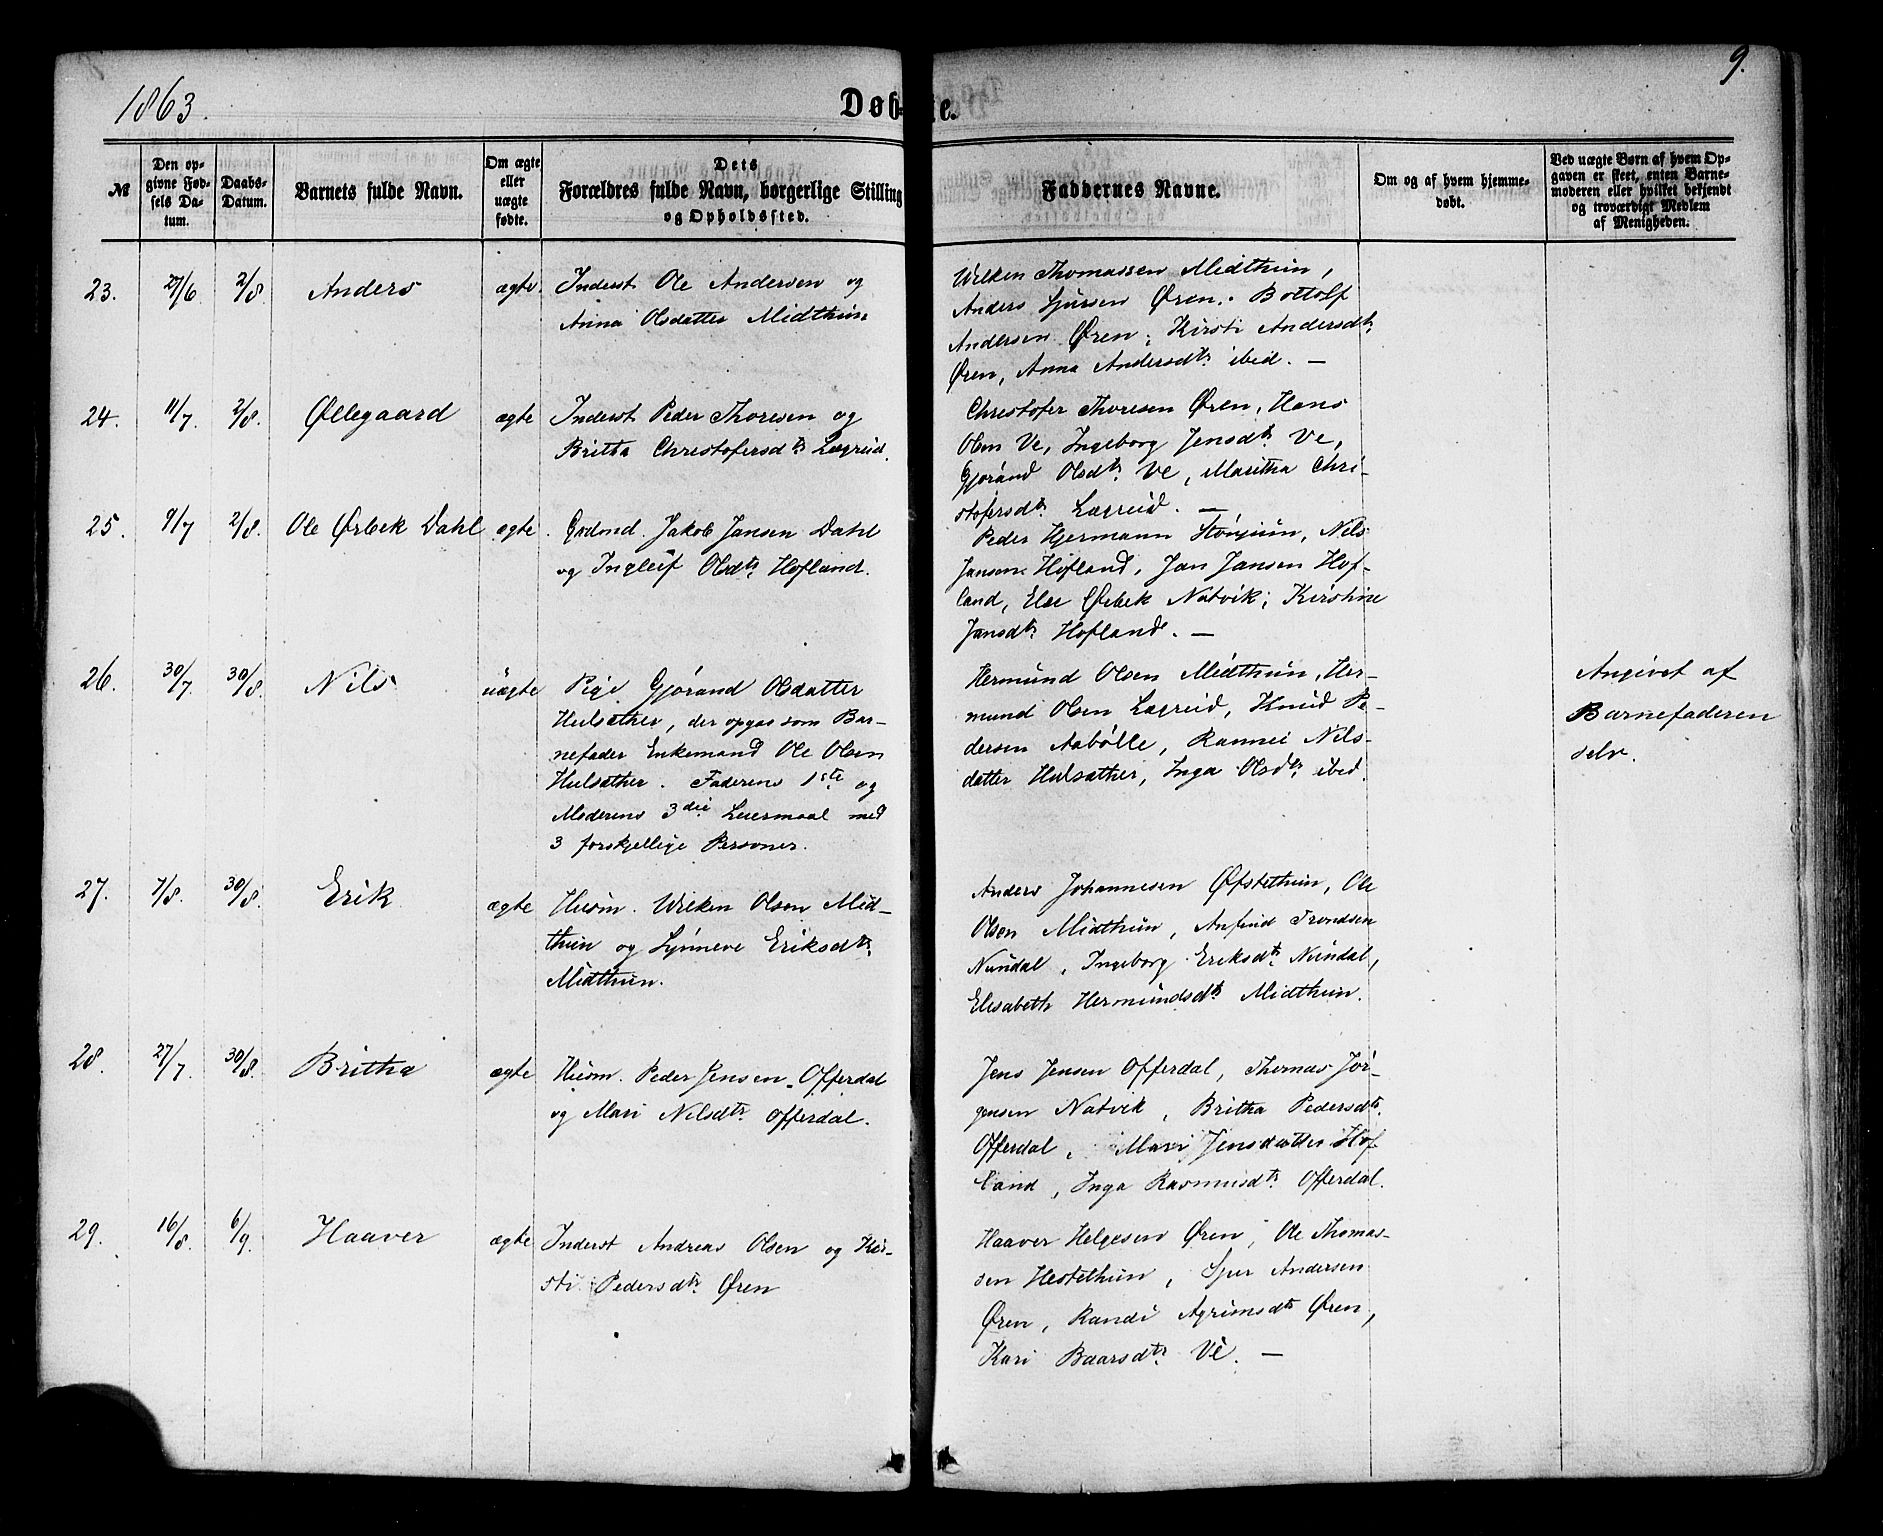 1863.
Døb-
te.
9.
№
Den op-
givne Fød-
sels Da-
tum.
Daabs-
Datum.
Barnets fulde Navn.
Om ægte
eller
uægte
fødte.
Dets
Forældres fulde Navn, borgerlige Stilling
og Opholdssted.
Faddernes Navne.
Om og af hvem hjemme-
døbt.
Ved uægte Børn af hvem Op-
gaven er skeet, enten Barne-
moderen eller hvilket bekjendt
og troværdigt Medlem
af Menigheden.
23. 27/6 2/8 Anders ægte. Inderst Ole Andersen og
Anna Olsdatter Midthun
Wilken Thomassen Midthun,
Anders Sjursen Øren, Bottolf
Andersen Øren, Kirsti Andersdtr
Øren, Anna Andersdtr ibid. —
24. 11/7. 2/8. Øllegaard ægte Inderst Peder Thoresen og
Britha Christofersdtr Lægreid.
Christofer Thoresen Øren, Hans
Olsen Ve, Ingeborg Jensdtr Ve,
Gjørand Olsdtr Ve, Maritha Chri-
stofersdtr Lægreid. —
25. 9/7 2/8. Ole Ørbek Dahl ægte. Grdmd. Jakob Jansen Dahl
og Ingleif Olsdtr Hofland.
Peder Hjermann Stønjum, Nils
Jansen Hofland, Jan Jansen Hof-
land, Else Ørbek Natvik, Kirstine
Jansdtr Hofland. —
26. 30/7. 30/8. Nils uægte Pige Gjørand Olsdatter
Hulsæther, der opgav som Bar-
nefader Enkemand Ole Olsen
Hulsæther. Faderens 1ste og
Moderens 3die Leiermaal med
3 forskjellige Personer.
Hermund Olsen Midthun, Her-
mund Olsen Lægreid, Knud Pe-
dersen Aabølle, Rannei Nils-
datter Hulsæther, Inga Olsdtr ibid.
Angivet af
Barnefaderen
selv.
27. 7/8. 30/8. Erik ægte Husm. Wilken Olsen Mid-
thun og Synneve Eriksdtr
Midthun.
Anders Johannesen Øfstethun, Ole
Olsen Midthun, Anfind Trondsen
Nundal, Ingeborg Eriksdtr Nundal,
Elisabeth Hermundsdtr Midthun.
28. 27/7. 30/8. Britha ægte Husm. Peder Jensen Offerdal
og Mari Nilsdtr Offerdal.
Jens Jensen Offerdal, Thomas Jør-
gensen Natvik, Britha Pedersdtr
Offerdal, Mari Jensdatter Hof
land, Inga Rasmusdtr Offerdal.
29. 16/8. 6/9. Haaver ægte Inderst Andreas Olsen og Kir-
sti Pedersdtr Øren
Haaver Helgesen Øren, Ole Thomas-
sen Hestethun, Sjur Andersen
Øren, Randi Agrimsdtr Øren,
Kari Baarsdtr Ve. —